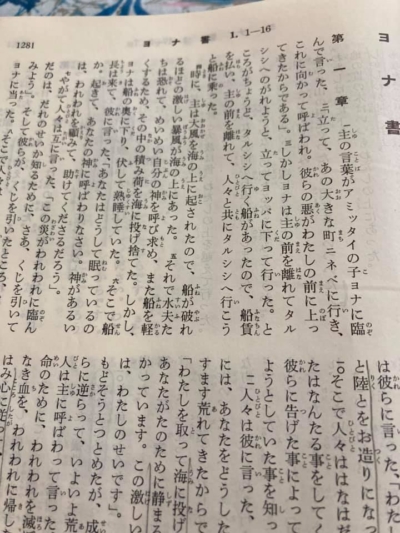 1281
ヨナ書 1. 1—16
ヨナ書
第一章
一主の言葉がアミッタイの子ヨナに臨
んで言った、二「立って、あの大きな町ニネベに行き、
これに向かって呼ばわれ。彼らの悪がわたしの前に上っ
てきたからである」。三しかしヨナは主の前を離れてタル
シシへのがれようと、立ってヨッパに下って行った。と
ころがちょうど、タルシシへ行く船があったので、船賃
を払い、主の前を離れて、人々と共にタルシシへ行こう
と船に乗った。
時に、主は大風を海の上に起されたので、船が破れ
るほどの激しい暴風が海の上にあった。五それで水夫た
ちは恐れて、めいめい自分の神を呼び求め、また船を軽
くするため、その中の積み荷を海に投げ捨てた。しかし、
ヨナは船の奥に下り、伏して熟睡していた。六そこで船
長は来て、彼に言った、「あなたはどうして眠っているの
か。起きて、あなたの神に呼ばわりなさい。神があるい
は、われわれを顧みて、助けてくださるだろう」。
やがて人々は互に言った、「この災がわれわれに臨ん
だのは、だれのせいか知るために、さあ、くじを引いて
みよう」。そして彼らが、くじを引いたところ、
ヨナに当った。
は彼らに言った、「わた
と陸とをお造りになっ
一〇そこで人々ははなはだ
たはなんたる事をしてく
彼らに告げた事によって
ようとしていた事を知っ
一一人々は彼に言った、
には、あなたをどうした
すます荒れてきたからで
「わたしを取って海に投げ
あなたがたのために静まる
かっています。この激しい
は、わたしのせいです」。
もどそうとつとめたが、成
らに逆らって、いよいよ荒
人々は主に呼ばわって言っ
命のために、われわれを滅
なき血を、われわれに帰し
はみ心に従っ